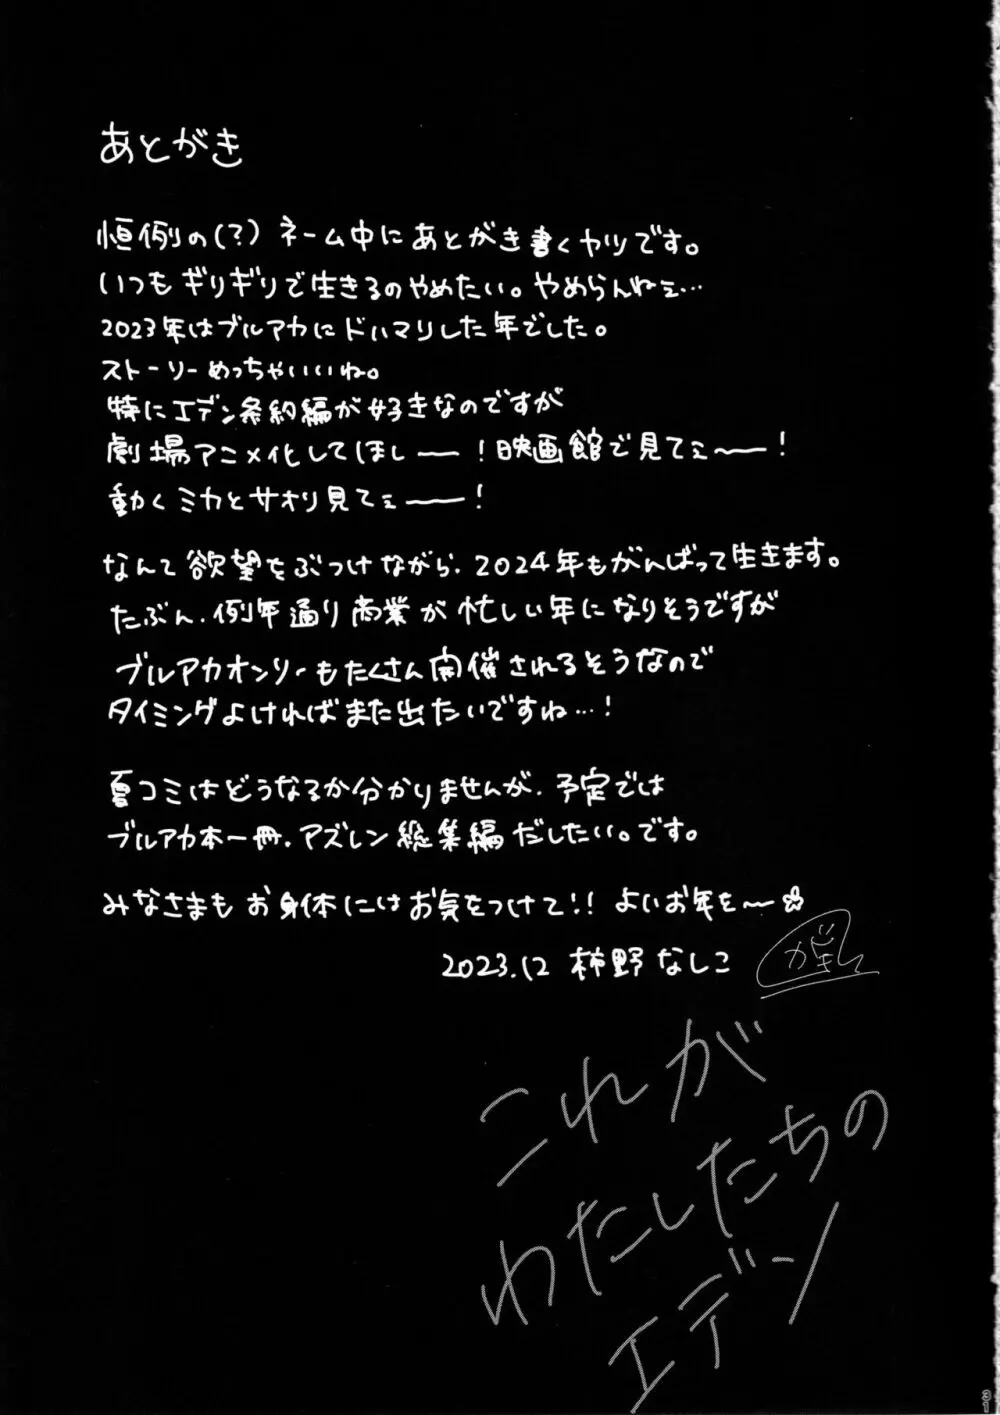 あとがき
恒例の(?)ネーム中にあとがき書くヤツです。
いつもギリギリで生きるのやめたい。やめらんねェ…
2023年はブルアカにドハマリした年でした。
ストーリーめっちゃいいね。
特にエデン条約編が好きなのですが
劇場アニメ化してほしーー!映画館で見てェ〜ー!
動くミカとサオリ見てェーー!
なんて欲望をぶつけながら、2024年もがんばって生きます。
たぶん、例年通り商業が忙しい年になりそうですが
ブルアカオンリーもたくさん開催されるそうなので
タイミングよければまた出たいですね…!
夏コミはどうなるか分かりませんが、予定では
ブルアカ本一冊、アズレン総集編だしたい。です。
みなさまもお身体にはお気をつけて!!よいお年を〜
2023.12 柿野なしこ
これが
わたしたちの
エデン
31